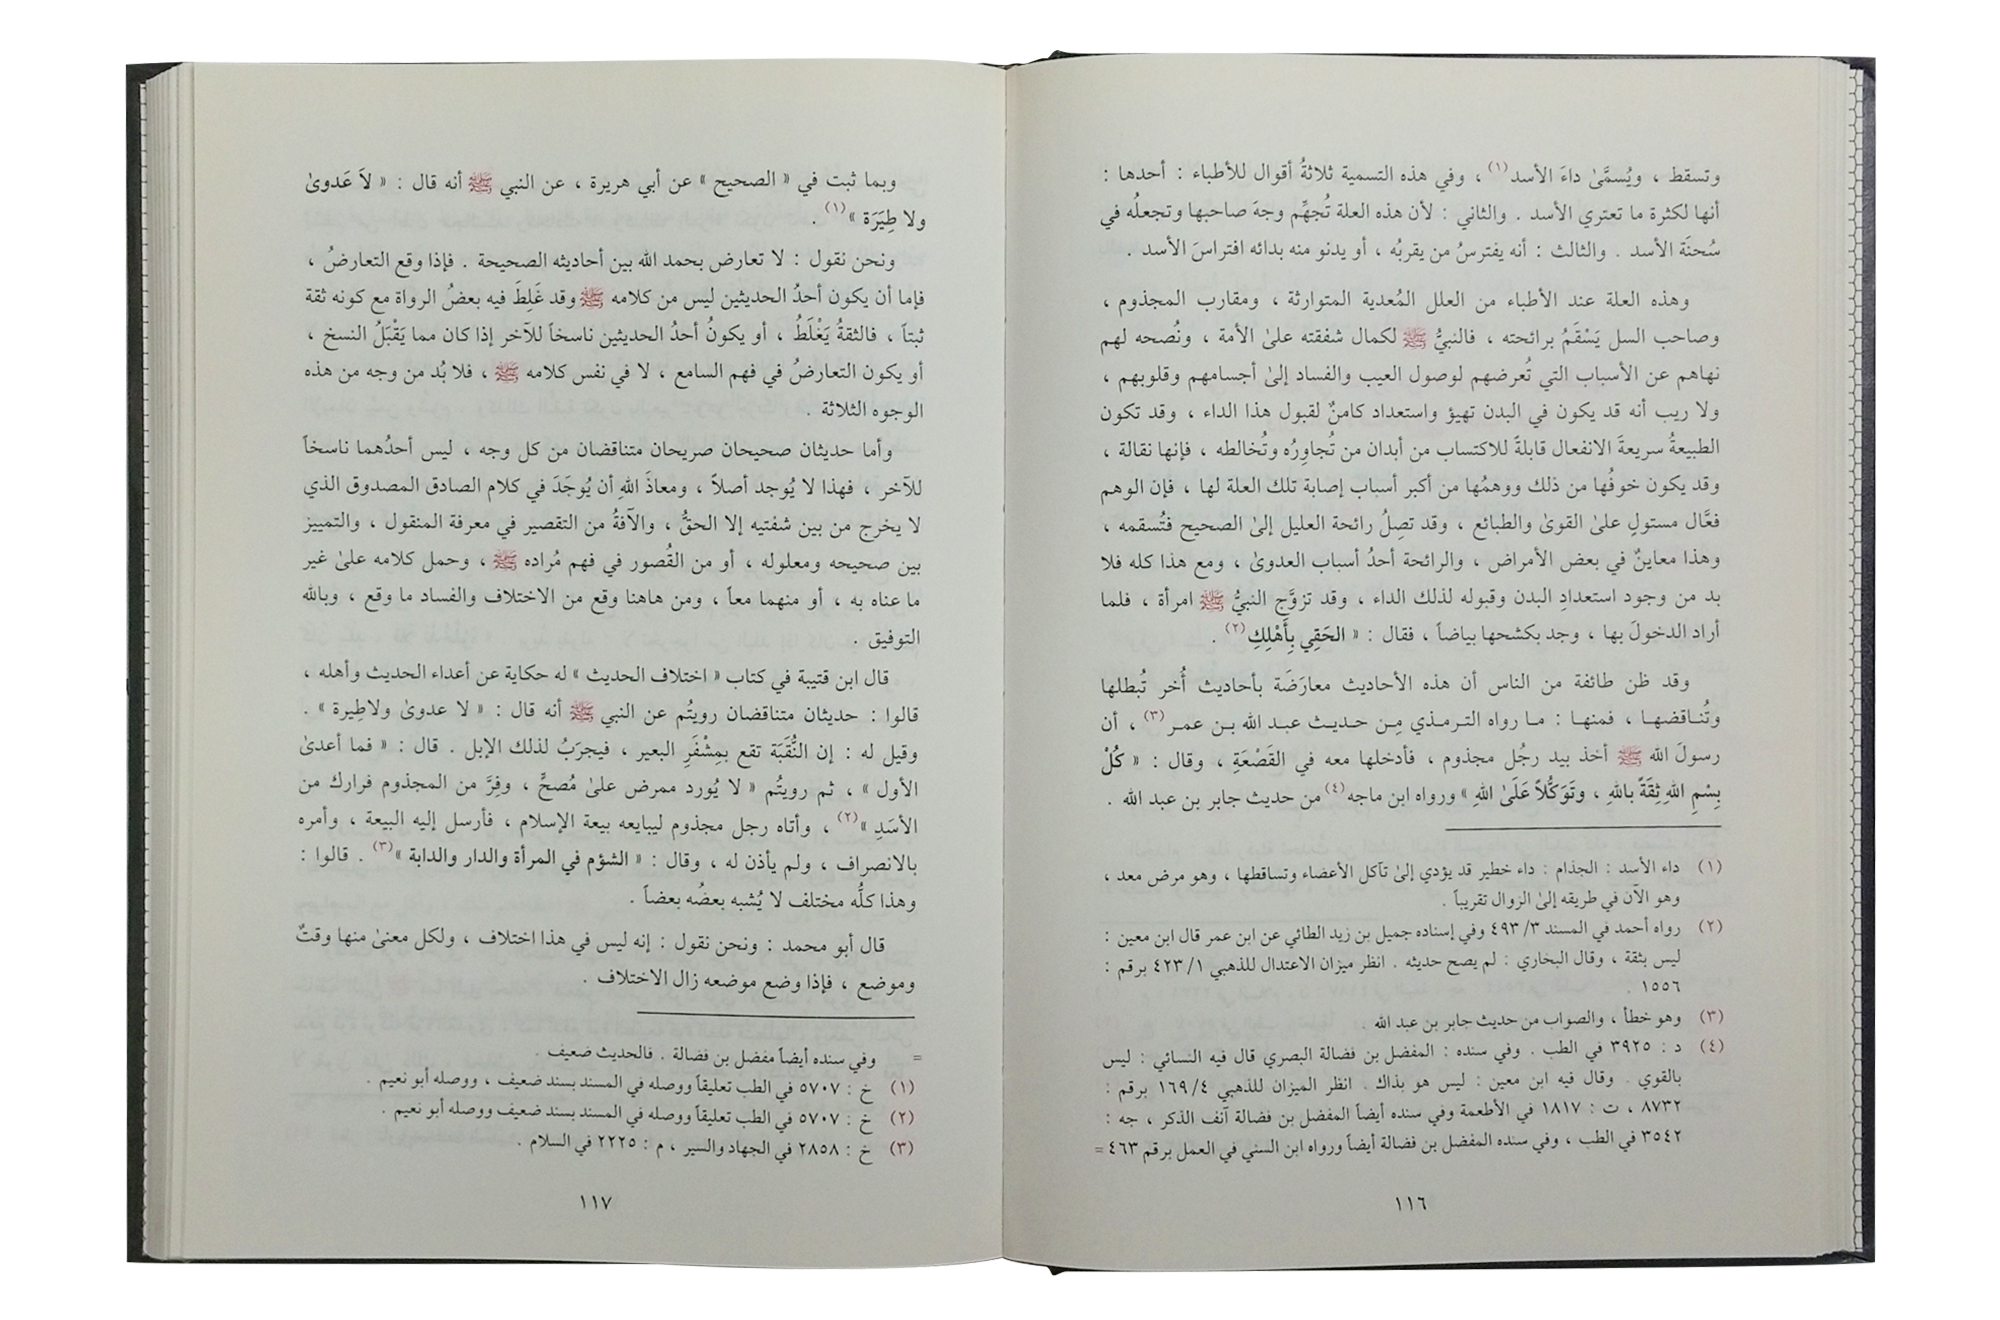 وتسقط ، ويُسمَّىٰ داءَ الأسد(١) ، وفي هذه التسمية ثلاثةُ أقوال للأطباء : أحدها :
أنها لكثرة ما تعتري الأسد . والثاني : لأن هذه العلة تُجهِّم وجهَ صاحبها وتجعلُه في
سُحنَة الأسد . والثالث : أنه يفترسُ من يقربُه ، أو يدنو منه بدائه افتراسَ الأسد .
وهذه العلة عند الأطباء من العلل المُعدية المتوارثة ، ومقارب المجذوم ,
وصاحب السل يَسْقَمُ برائحته ، فالنبيُّ ﷺ لكمال شفقته علىٰ الأمة ، ونُصحه لهم
نهاهم عن الأسباب التي تُعرضهم لوصول العيب والفساد إلىٰ أجسامهم وقلوبهم ،
ولا ريب أنه قد يكون في البدن تهيؤ واستعداد كامنٌ لقبول هذا الداء ، وقد تكون
الطبيعةُ سريعةَ الانفعال قابلةً للاكتساب من أبدان من تُجاوِرُه وتُخالطه ، فإنها نقالة ،
وقد يكون خوفُها من ذلك ووهمُها من أكبر أسباب إصابة تلك العلة لها ، فإن الوهم
فعَّال مستولٍ علىٰ القوىٰ والطبائع ، وقد تصِلُ رائحة العليل إلىٰ الصحيح فتُسقمه ،
وهذا معاينٌ في بعض الأمراض ، والرائحة أحدُ أسباب العدوىٰ ، ومع هذا كله فلا
بد من وجود استعدادِ البدن وقبوله لذلك الداء ، وقد تزوَّج النبيُّ ﷺ امرأة ، فلما
أراد الدخولَ بها ، وجد بكشحها بياضاً ، فقال : « الحَقِي بِأَهْلِكِ(٢) .
وقد ظن طائفة من الناس أن هذه الأحاديث معارَضَة بأحاديث أُخر تُبطلها
وتُناقضها ، فمنها : ما رواه الترمذي مِن حديث عبد الله بن عمر(٣) ، أن
رسولَ الله ﷺ أخذ بيد رجُل مجذوم ، فأدخلها معه في القَصْعَةِ ، وقال : « كُلْ
بِسْمِ اللهِ ثِقَةً باللهِ ، وتَوَكُّلاً عَلَىٰ اللهِ » ورواه ابن ماجه(٤) من حديث جابر بن عبد الله .
(١) داء الأسد : الجذام : داء خطير قد يؤدي إلىٰ تآكل الأعضاء وتساقطها ، وهو مرض معد ،
وهو الآن في طريقه إلىٰ الزوال تقريباً .
(٢) رواه أحمد في المسند ٣/ ٤٩٣ وفي إسناده جميل بن زيد الطائي عن ابن عمر قال ابن معين :
ليس بثقة ، وقال البخاري : لم يصح حديثه . انظر ميزان الاعتدال للذهبي ١/ ٤٢٣ برقم :
١٥٥٦ .
(٣) وهو خطأ ، والصواب من حديث جابر بن عبد الله .
(٤) د : ٣٩٢٥ في الطب . وفي سنده : المفضل بن فضالة البصري قال فيه النسائي : ليس
بالقوي . وقال فيه ابن معين : ليس هو بذاك . انظر الميزان للذهبي ٤/ ١٦٩ برقم :
٨٧٣٢ ، ت : ١٨١٧ في الأطعمة وفي سنده أيضاً المفضل بن فضالة آنف الذكر ، جه :
٣٥٤٢ في الطب ، وفي سنده المفضل بن فضالة أيضاً ورواه ابن السني في العمل برقم ٤٦٣ =
١١٦
وبما ثبت في « الصحيح » عن أبي هريرة ، عن النبي ﷺ أنه قال : « لاَ عَدوىٰ
ولا طِيَرَة »(١) .
ونحن نقول : لا تعارض بحمد الله بين أحاديثه الصحيحة . فإذا وقع التعارضُ ،
فإما أن يكون أحدُ الحديثين ليس من كلامه ﷺ وقد غَلِطَ فيه بعضُ الرواة مع كونه ثقة
ثبتاً ، فالثقةُ يَغْلَطُ ، أو يكونُ أحدُ الحديثين ناسخاً للآخر إذا كان مما يَقْبَلُ النسخ ،
أو يكون التعارضُ في فهم السامع ، لا في نفس كلامه ﷺ ، فلا بُد من وجه من هذه
الوجوه الثلاثة .
وأما حديثان صحيحان صريحان متناقضان من كل وجه ، ليس أحدُهما ناسخاً
للآخر ، فهذا لا يُوجد أصلاً ، ومعاذَ اللهِ أن يُوجَدَ في كلام الصادق المصدوق الذي
لا يخرج من بين شفتيه إلا الحقُّ ، والآفةُ من التقصير في معرفة المنقول ، والتمييز
بين صحيحه ومعلوله ، أو من القُصور في فهم مُراده ﷺ ، وحمل كلامه علىٰ غير
ما عناه به ، أو منهما معاً ، ومن هاهنا وقع من الاختلاف والفساد ما وقع ، وبالله
التوفيق .
قال ابن قتيبة في كتاب « اختلاف الحديث » له حكاية عن أعداء الحديث وأهله ،
قالوا : حديثان متناقضان رويتُم عن النبي ﷺ أنه قال : « لا عدوىٰ ولاطِيرة » .
وقيل له : إن النُّقبَة تقع بمِشْفَرِ البعير ، فيجرَبُ لذلك الإبل . قال : « فما أعدىٰ
الأول » ، ثم رويتُم « لا يُورد ممرض علىٰ مُصحٍّ ، وفِرَّ من المجذوم فرارك من
الأسَدِ »(٢) ، وأتاه رجل مجذوم ليبايعه بيعة الإسلام ، فأرسل إليه البيعة ، وأمره
بالانصراف ، ولم يأذن له ، وقال : « الشؤم في المرأة والدار والدابة »(٣) . قالوا :
وهذا كلُّه مختلف لا يُشبه بعضُه بعضاً .
قال أبو محمد : ونحن نقول : إنه ليس في هذا اختلاف ، ولكل معنىٰ منها وقتٌ
وموضع ، فإذا وضع موضعه زال الاختلاف .
= وفي سنده أيضاً مفضل بن فضالة . فالحديث ضعيف .
(١) خ : ٥٧٠٧ في الطب تعليقاً ووصله في المسند بسند ضعيف ، ووصله أبو نعيم .
(٢) خ : ٥٧٠٧ في الطب تعليقاً ووصله في المسند بسند ضعيف ووصله أبو نعيم .
(٣) خ : ٢٨٥٨ في الجهاد والسير ، م : ٢٢٢٥ في السلام .
١١٧